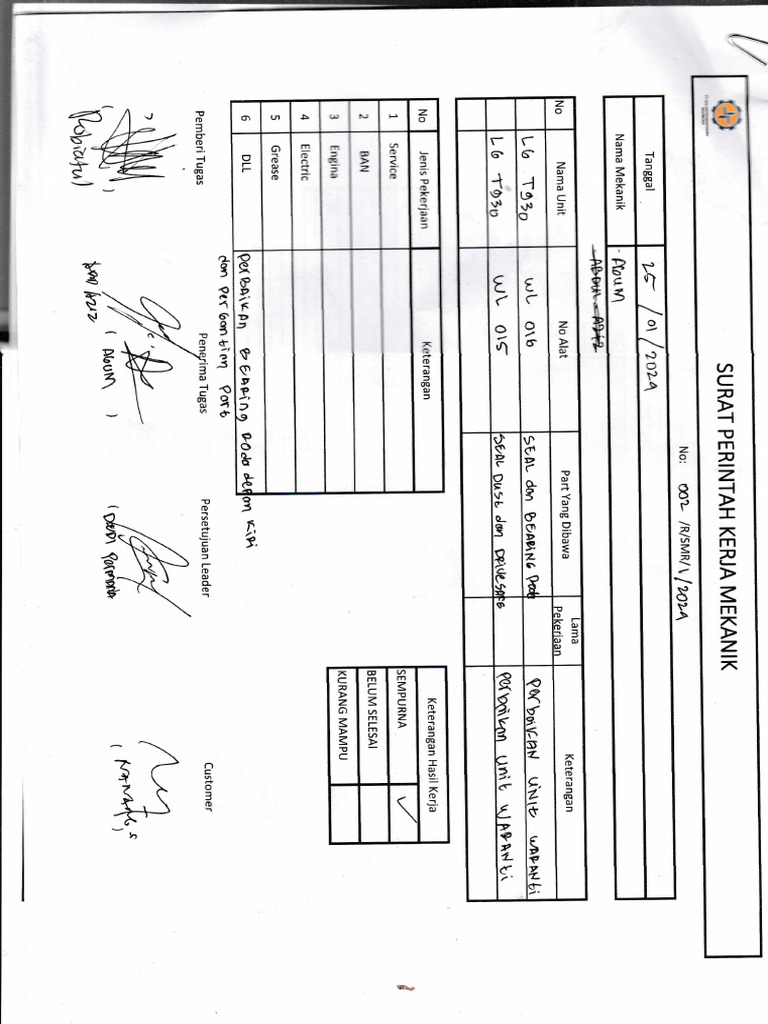 SURAT PERINTAH KERJA MEKANIK
No: 002 /R/SMR/1/2024
Tanggal 25 /01 /2024
Nama Mekanik - AGUM
- ABDUL AZIZ
No Nama Unit No Alat Part Yang Dibawa Lama Pekerjaan Keterangan
LG T930 WL 016 SEAL dan BEARING Roda perbaikan unit waranti
LG T930 WL 015 SEAL Dust dan perbaikan unit waranti
No Jenis Pekerjaan Keterangan
1 Service
2 BAN
3 Engina
4 Electric
5 Grease
6 DLL perbaikan BEARING Roda depan kiri
dan pergantian part
Keterangan Hasil Kerja
SEMPURNA ✓
BELUM SELESAI
KURANG MAMPU
Pemberi Tugas Penerima Tugas Persetujuan Leader Customer
( AGUM )